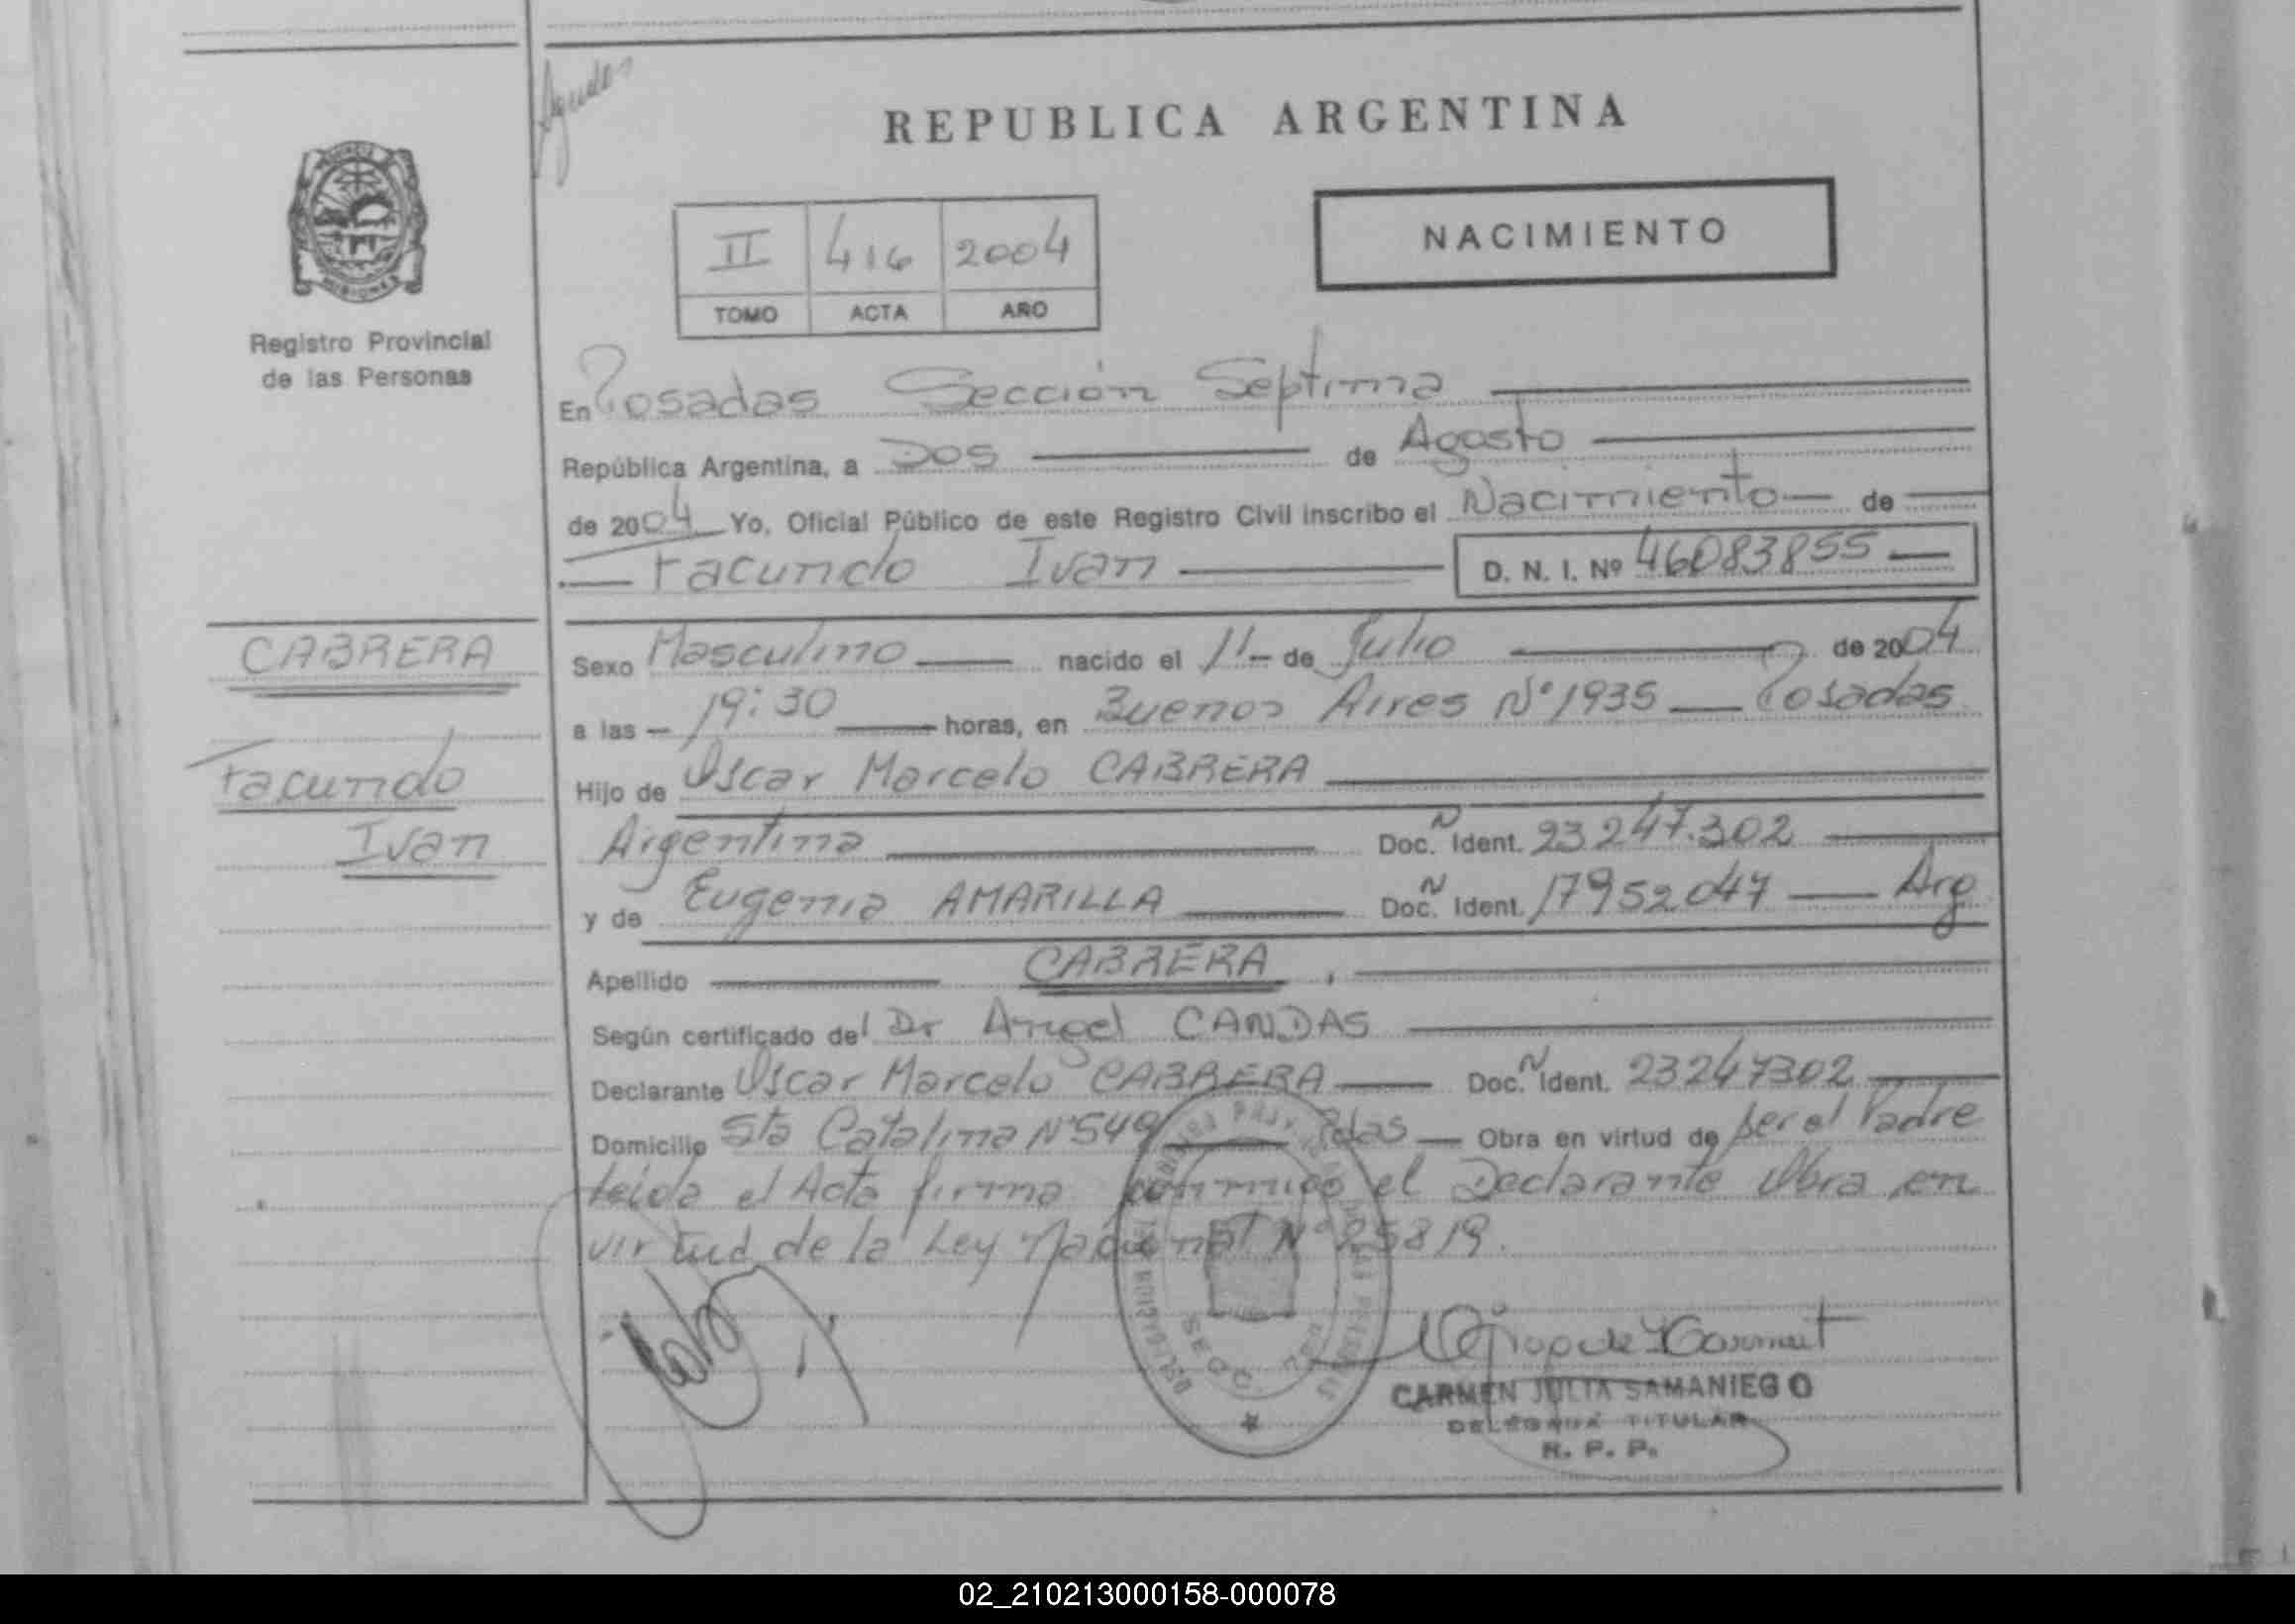 Agudes
REPUBLICA ARGENTINA
MISIONES
II 416 2004
TOMO ACTA AÑO
NACIMIENTO
Registro Provincial
de las Personas
En Posadas Sección Septima
República Argentina, a Dos de Agosto
de 2004 Yo, Oficial Público de este Registro Civil inscribo el Nacimiento de
Facundo Ivan D. N. I. Nº 46083855
CABRERA
Facundo
Ivan
Sexo Masculino nacido el 11 de Julio de 2004
a las 19:30 horas, en Buenos Aires Nº 1935 Posadas
Hijo de Oscar Marcelo CABRERA
Argentina Doc. N Ident. 23247.302
y de Eugenia AMARILLA Doc. N Ident. 17952047 Arg
Apellido CABRERA
Según certificado del Dr Angel CANDAS
Declarante Oscar Marcelo CABRERA Doc. N Ident. 23247302
Domicilio Sta Catalina Nº 549 Pdas Obra en virtud de ser el Padre
Leida el Acta firma conmigo el Declarante Obra en
virtud de la Ley Nacional Nº 25819.
CARMEN JULIA SAMANIEGO
DELEGADA TITULAR
R. P. P.
02_210213000158-000078